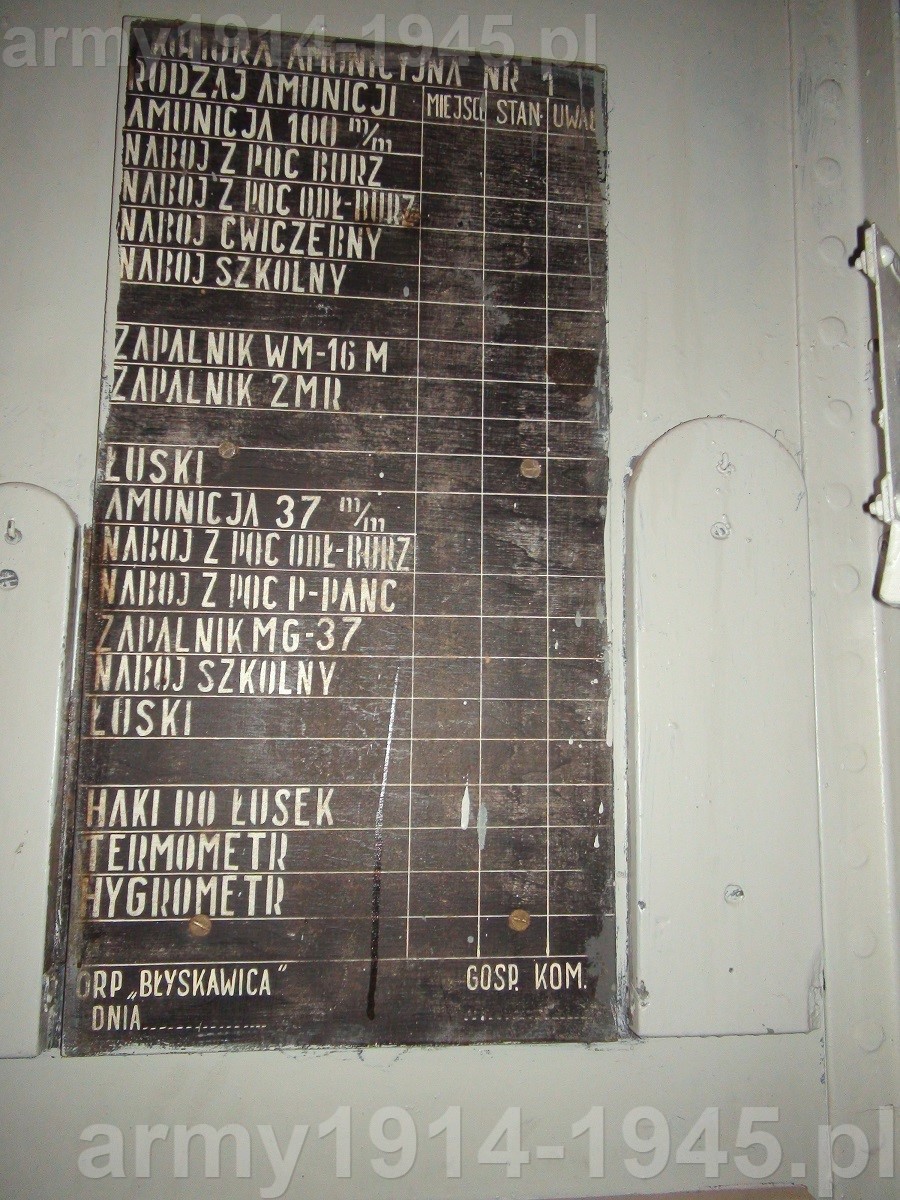 army1914-1945.pl
KOMORA AMUNICYJNA NR 1
RODZAJ AMUNICJI MIEJSC STAN. UWAG
AMUNICJA 100 m/m
NABOJ Z POC BURZ
NABOJ Z POC ODŁ-BURZ
NABOJ CWICZEBNY
NABOJ SZKOLNY
ZAPALNIK WM-16 M
ZAPALNIK 2MR
ŁUSKI
AMUNICJA 37 m/m
NABOJ Z POC ODŁ-BURZ
NABOJ Z POC P-PANC
ZAPALNIK MG-37
NABOJ SZKOLNY
ŁUSKI
HAKI DO ŁUSEK
TERMOMETR
HYGROMETR
ORP „BŁYSKAWICA" GOSP. KOM.
DNIA
army1914-1945.pl